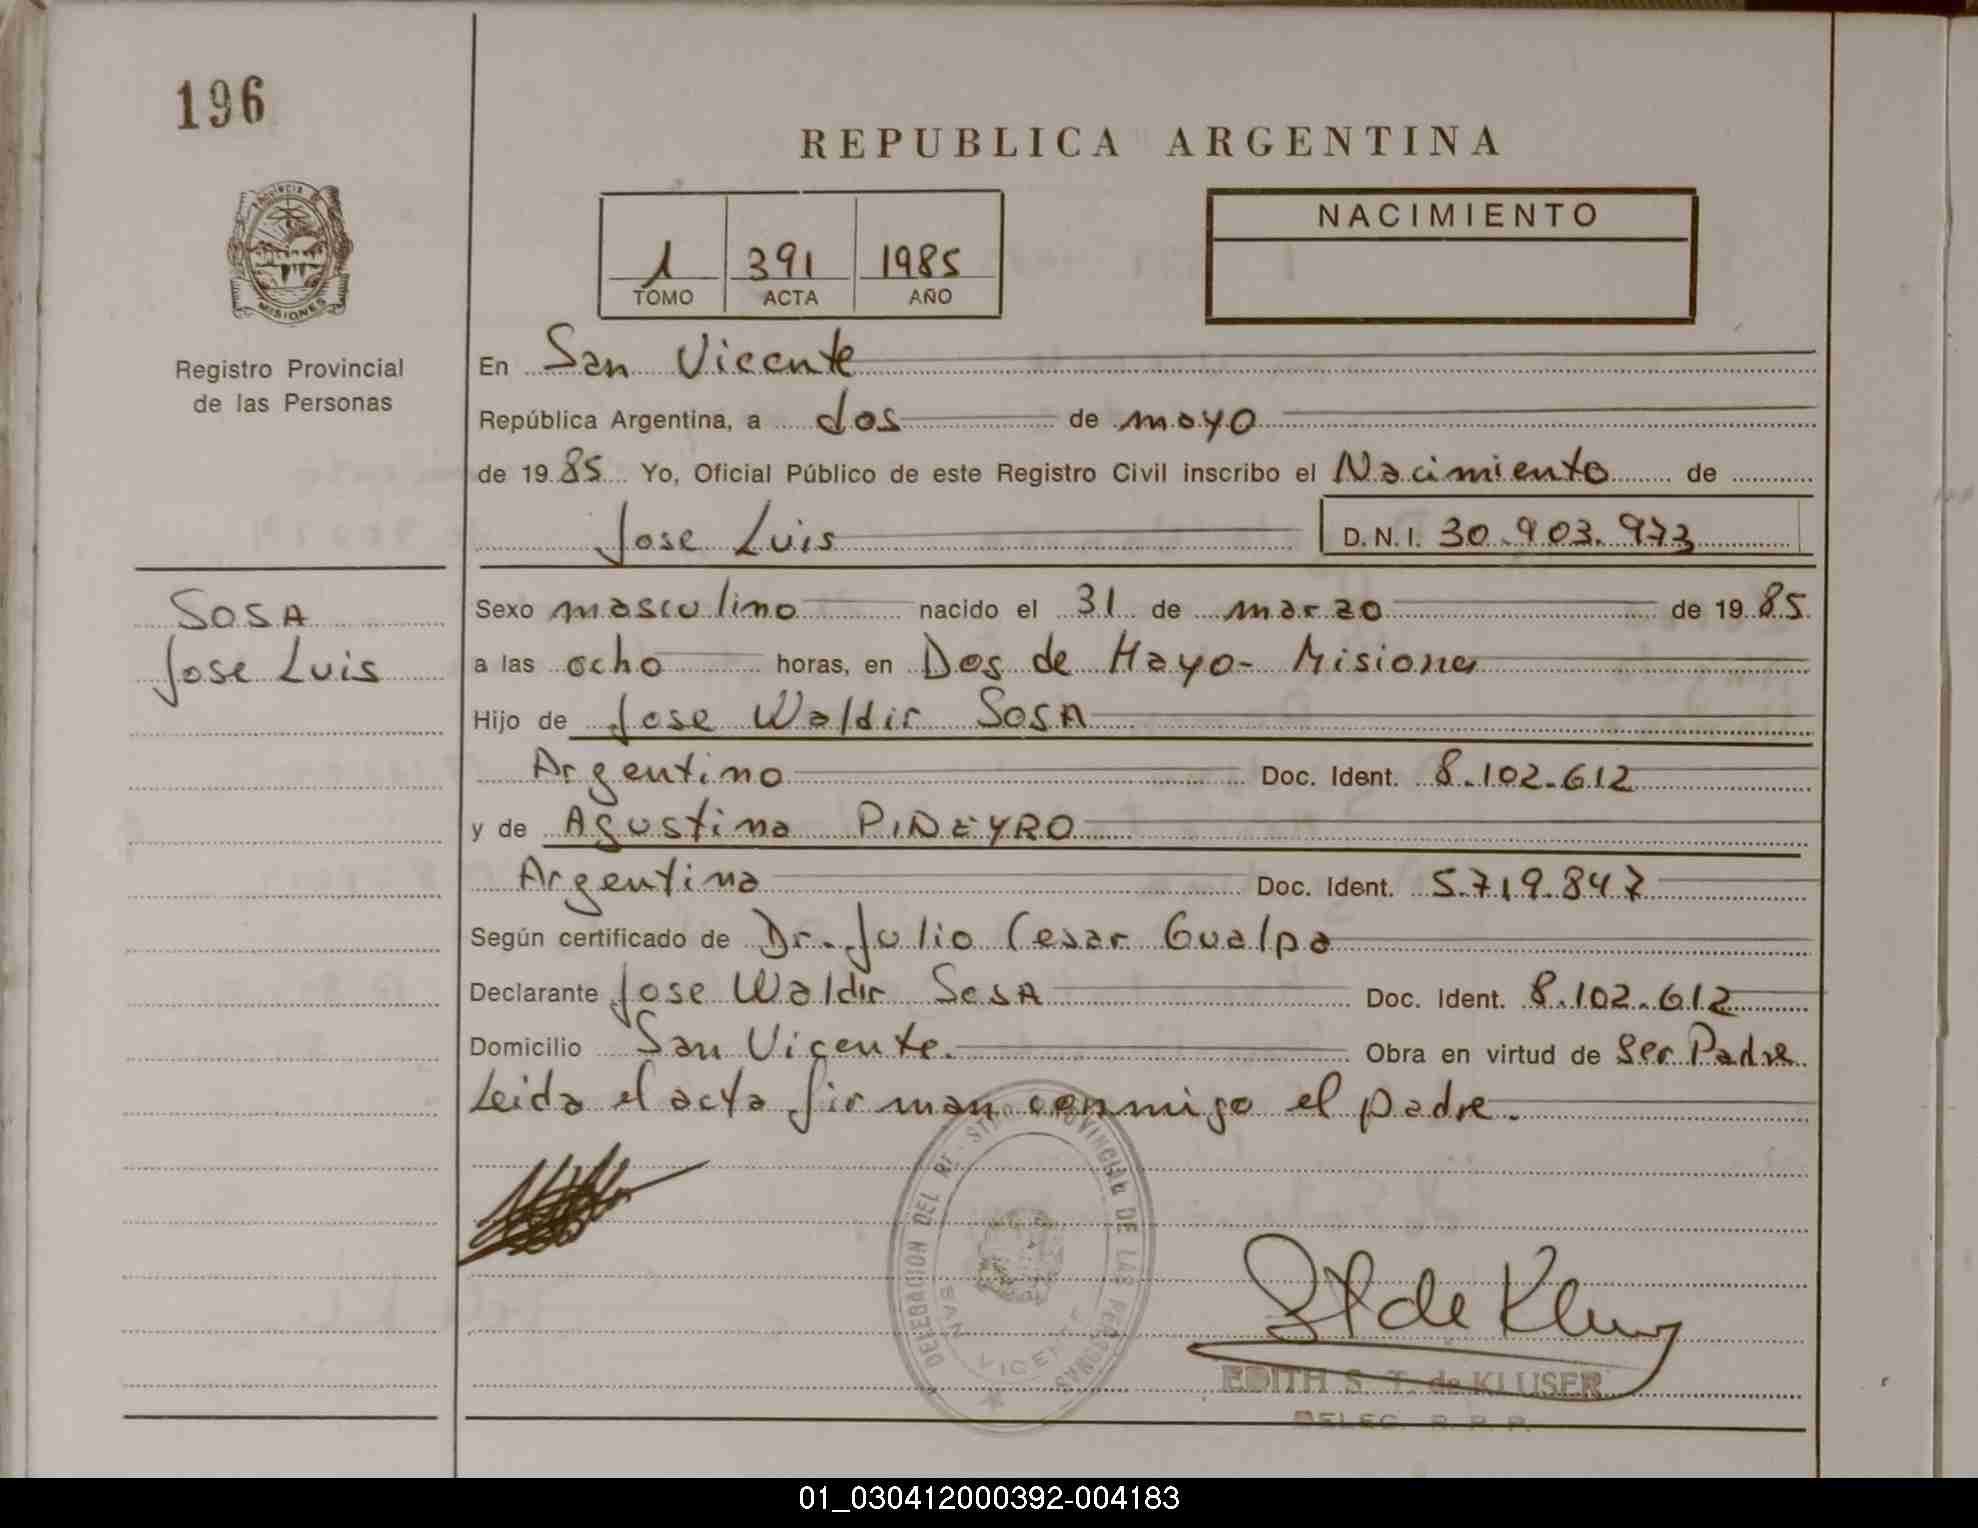 196
REPUBLICA ARGENTINA
NACIMIENTO
1 391 1985
TOMO ACTA AÑO
PROVINCIA DE
MISIONES
Registro Provincial
de las Personas
En San Vicente
República Argentina, a dos de mayo
de 1985 Yo, Oficial Público de este Registro Civil inscribo el Nacimiento de
Jose Luis D.N.I. 30.903.973
SOSA
Jose Luis
Sexo masculino nacido el 31 de marzo de 1985
a las ocho horas, en Dos de Mayo - Misiones
Hijo de Jose Waldir SOSA
Argentino Doc. Ident. 8.102.612
y de Agustina PIÑEYRO
Argentina Doc. Ident. 5.719.847
Según certificado de Dr. Julio Cesar Gualpa
Declarante Jose Waldir SOSA Doc. Ident. 8.102.612
Domicilio San Vicente. Obra en virtud de Ser Padre
Leida el acta firman conmigo el padre.
DELEGACION DEL REGISTRO PROVINCIAL DE LAS PERSONAS
SAN VICENTE
EDITH S. T. de KLUSER
DELEG. R. P. P.
01_030412000392-004183